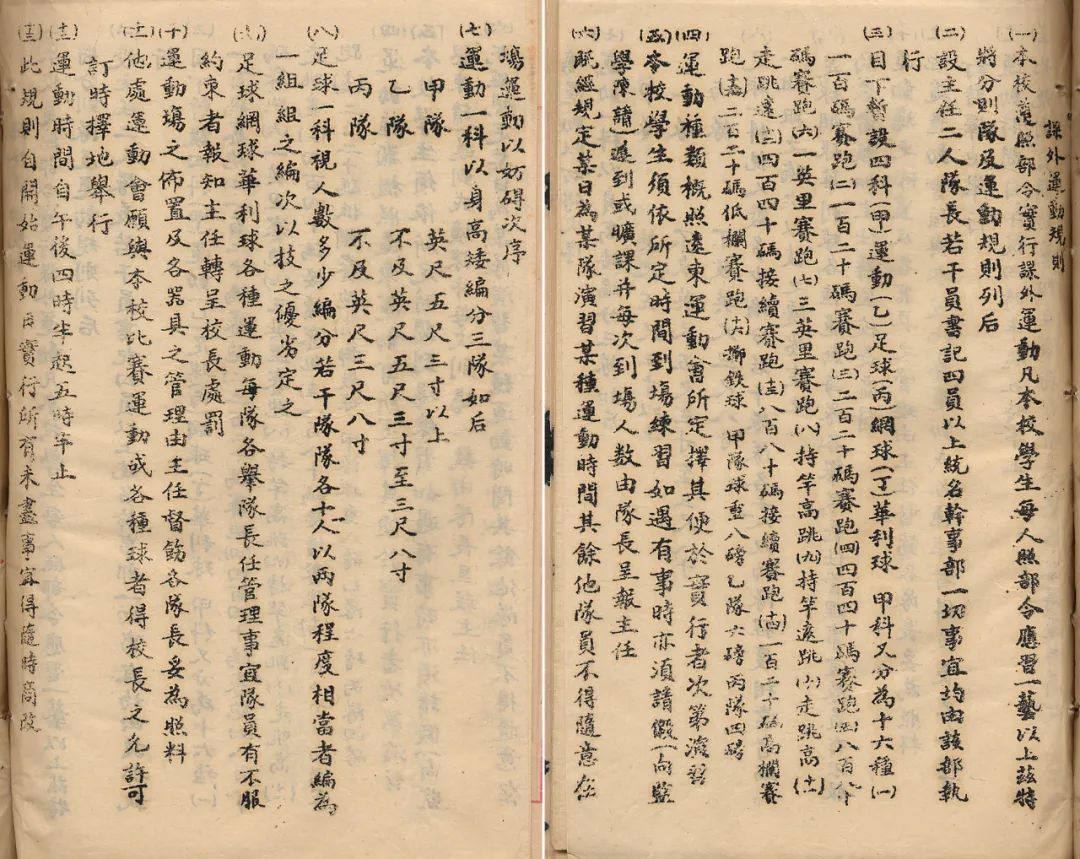 課外運動規則
(一)本校遵照部令實行課外運動凡本校學生每人照部令應習一藝以上茲特
將分則隊及運動規則列后
(二)設主任二人隊長若干員書記四員以上統名幹事部一切事宜均由該部執
行
(三)目下暫設四科(甲)運動(乙)足球(丙)網球(丁)華利球 甲科又分為十六種(一)
一百碼賽跑(二)一百二十碼賽跑(三)二百二十碼賽跑(四)四百四十碼賽跑(五)八百八十
碼賽跑(六)一英里賽跑(七)三英里賽跑(八)持竿高跳(九)持竿遠跳(十)走跳高(十一)
走跳遠(十二)四百四十碼接續賽跑(十三)八百八十碼接續賽跑(十四)一百二十碼高欄賽
跑(十五)二百二十碼低欄賽跑(十六)擲鉄球 甲隊球重八磅乙隊六磅丙隊四磅
(四)運動種類概照遠東運動會所定擇其便於實行者次第演習
(五)本校學生須依所定時間到場練習如遇有事時亦須請假(一向監
學陳請)遲到或曠課并每次到場人數由隊長呈報主任
(六)既經規定某日為某隊演習某種運動時間其餘他隊員不得隨意在
場運動以妨碍次序
(七)運動一科以身高矮編分三隊如后
甲隊 英尺五尺三寸以上
乙隊 不及英尺五尺三寸至三尺八寸
丙隊 不及英尺三尺八寸
(八)足球一科視人數多少編分若干隊隊各十人以兩隊程度相當者編為
一組組之編次以技之優劣定之
(九)足球網球華利球各種運動每隊各舉隊長任管理事宜隊員有不服
約束者報知主任轉呈校長處罰
(十)運動場之佈置及各器具之管理由主任督飭各隊長妥為照料
(十一)他處運動會願與本校比賽運動或各種球者得校長之允許可
訂時擇地舉行
(十二)運動時間自午後四時半起五時半止
(十三)此規則自開始運動日實行所有未盡事宜得隨時商改